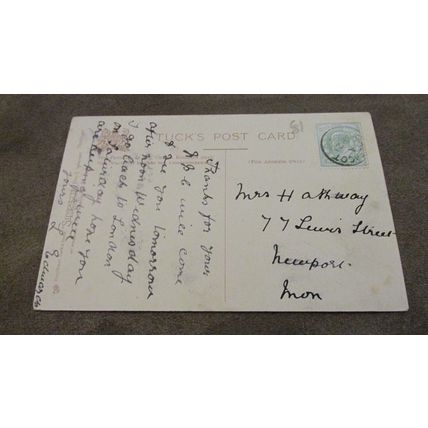 TUCK'S POST CARD
(FOR ADDRESS ONLY)
Thanks for your
P.P.c will come
& see you tomorrow
afternoon Wednesday
I go back to London
on Saturday hope you
are keeping well
yours L Edwards
Mrs Hathway
77 Lewis Street
Newport
Mon